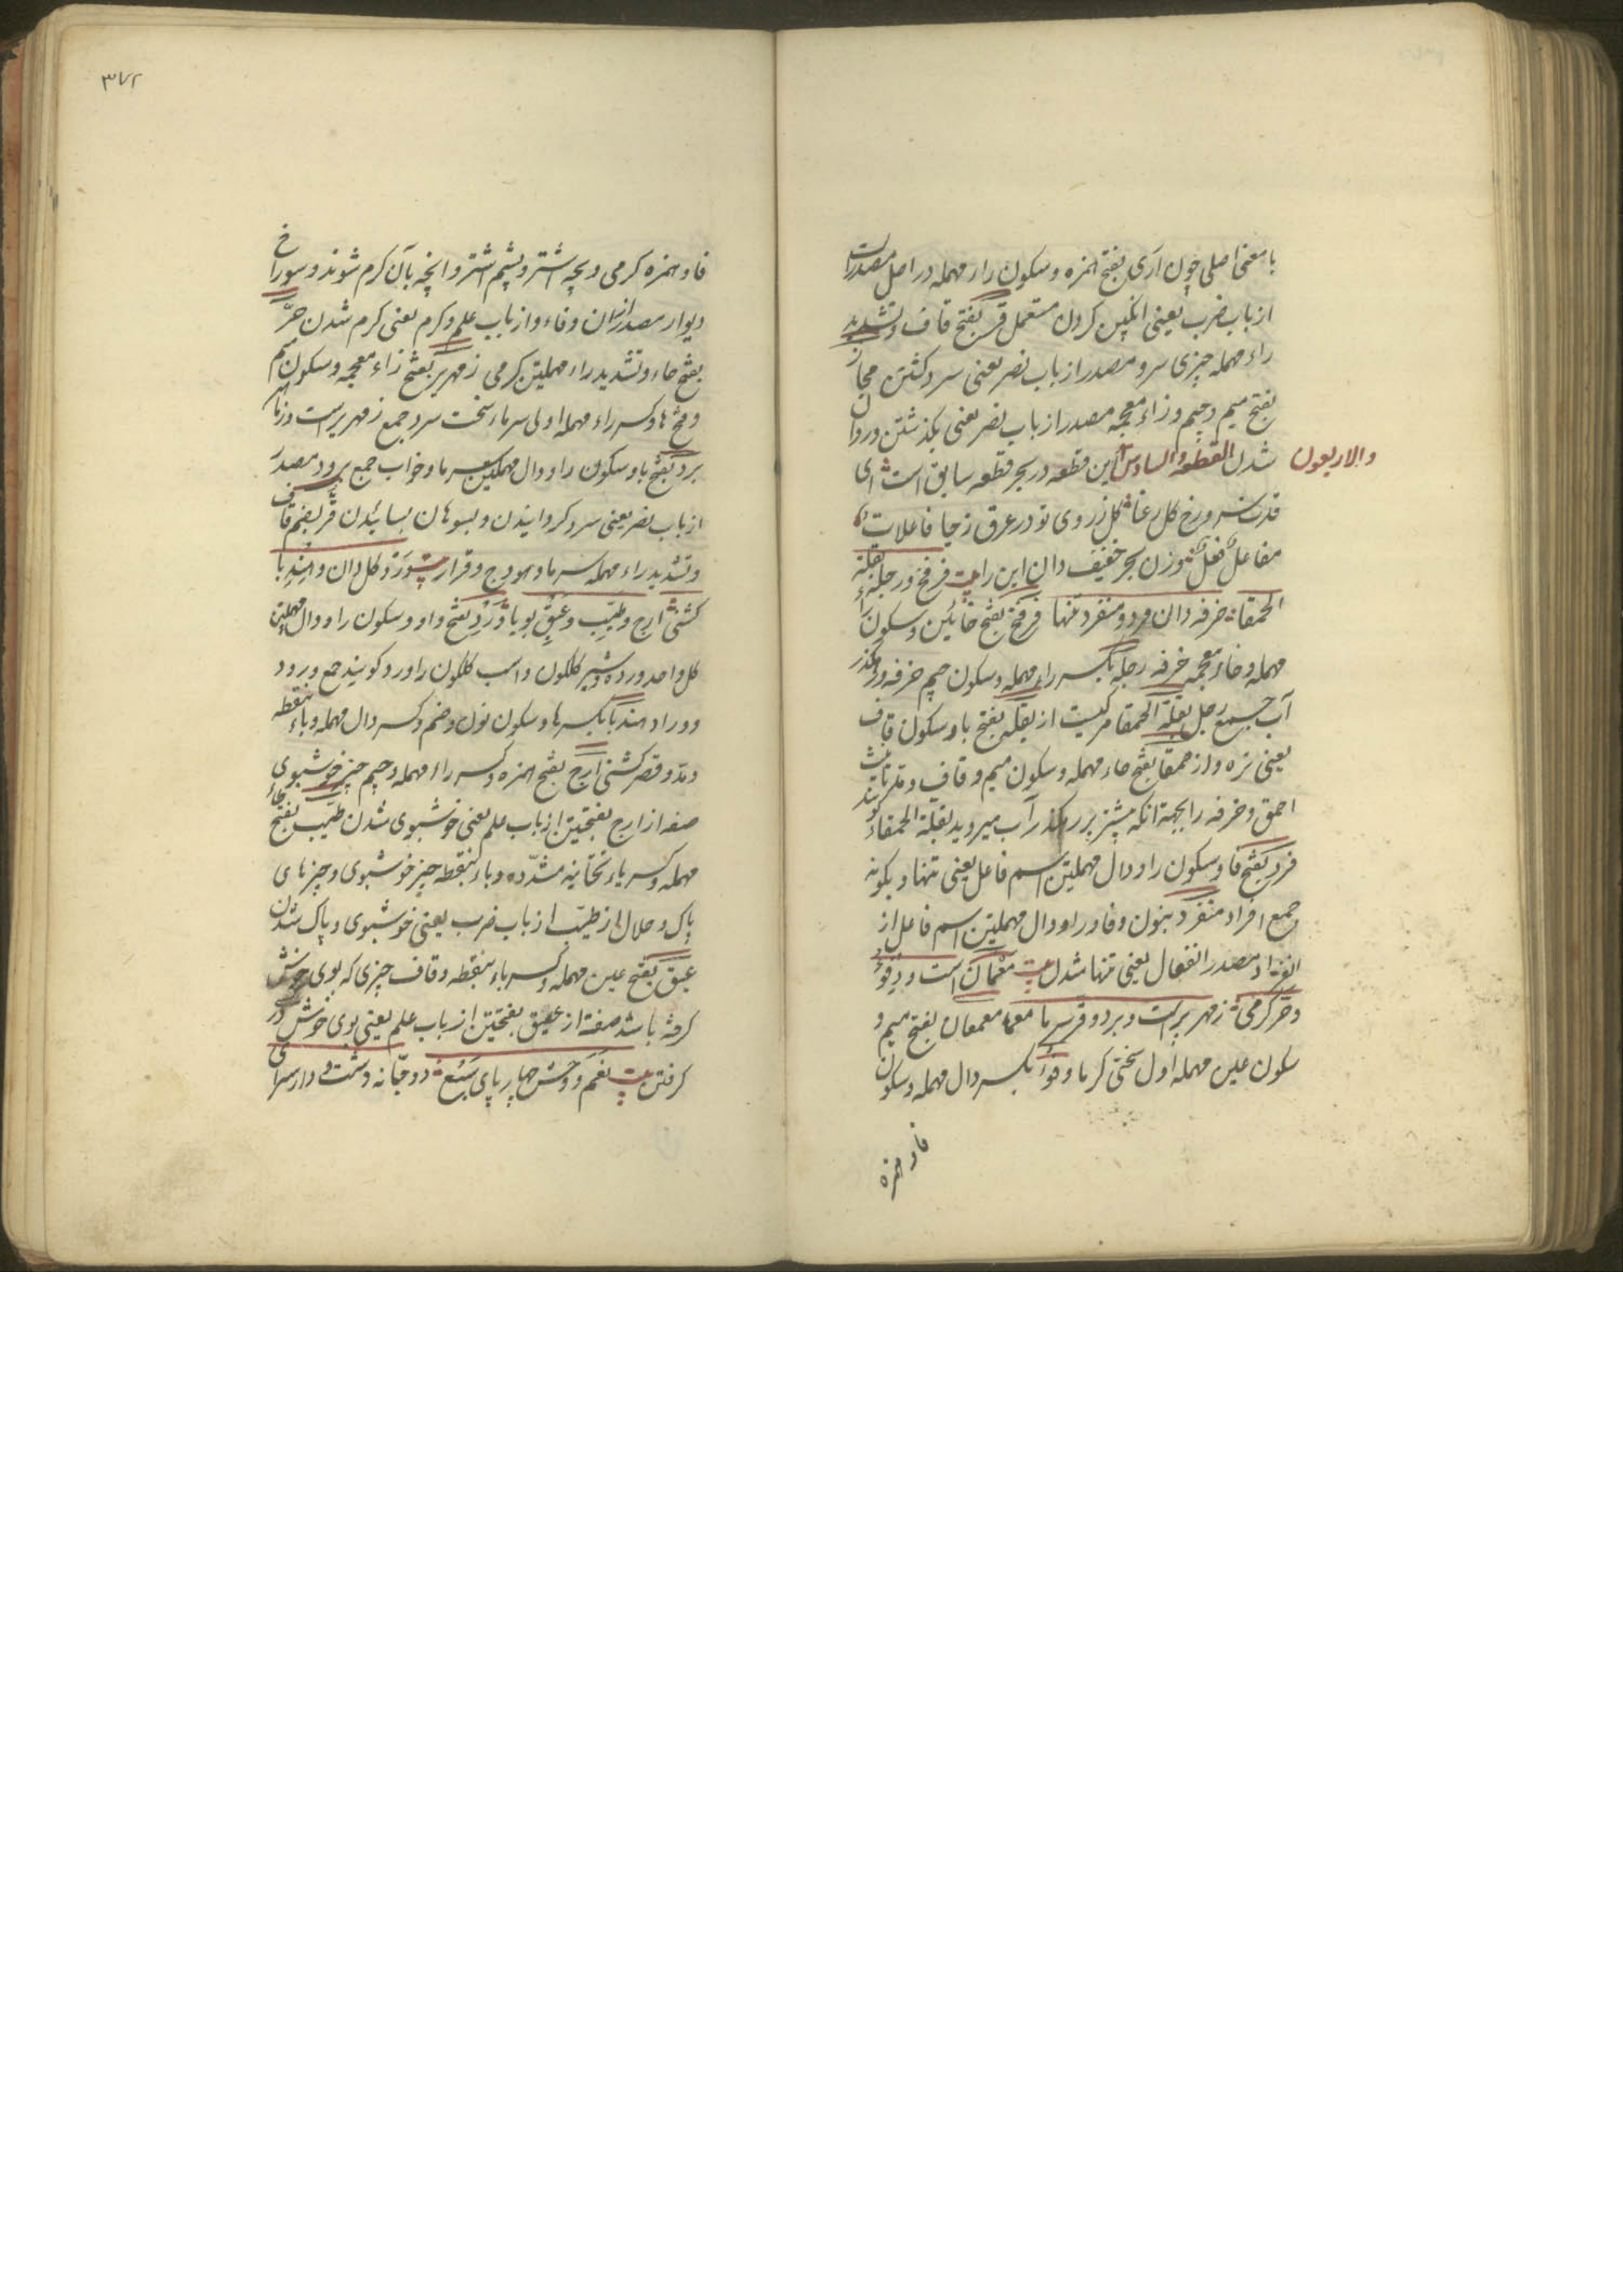 با معنی اصلی چون اری بفتح همزه و سکون راء مهمله در اصل مصدرست
از باب ضرب یعنی انکبین کردن مستعمل قر بفتح قاف و تشدید
راء مهمله چیزی سرد و مصدر از باب نصر یعنی سرد کشتن مجاز
بفتح میم و جیم و زاء معجمه مصدر از باب نصر یعنی بکذشتن و روان
شدن القطعة السادس والاربعون این قطعه در بحر قطعه سابق است ای
قدت سرو و رخ کل رعنا کل ز روی تو در عرق زحیا فاعلاتن
مفاعلن فعلن وزن بحر خفیف دان این را بیت فرفخ و رجله بقلة
الحمقا خرفه دان فرد و منفرد تنها فرفخ بفتح فائین و سکون راء
مهمله و خاء معجمه خرفه رجله بکسر راء مهمله و سکون جیم خرفه و رهکذر
آب جمع رجل بقلة الحمقا مرکبست از بقله بفتح با و سکون قاف
یعنی تره و از حمقا بفتح حاء مهمله و سکون میم و قاف و مد تانیث
احمق و خرفه را بجهة انکه بیشتر بر رهکذر آب میروید بقلة الحمقاء کویند
فرد بفتح فا و سکون راء و دال مهملتین اسم فاعل یعنی تنها و یکونه
جمع افراد منفرد بنون و فا و را و دال مهملتین اسم فاعل از
انفراد مصدر انفعال یعنی تنها شدن بیت معمعان است و دفؤ
و حر کرمی زمهریرست و برد و قر سرما معمعان بفتح میم و
سکون عین مهمله اول سختی کرما و دفؤ بکسر دال مهمله و سکون
فا و همزه
فا و همزه کرمی و بچه اشتر و پشم اشتر و انچه بآن کرم شوند و سوراخ
دیوار مصدر از ان دفاء و از باب علم و کرم یعنی کرم شدن حر
بفتح حاء و تشدید راء مهملتین کرمی زمهریر بفتح زاء معجمه و سکون میم
و فتح ها و کسر راء مهمله اولی سرماء سخت سرد جمع زمهریرست
برد بفتح با و سکون را و دال مهملتین سرما و خواب جمع برود مصدر
از باب نصر یعنی سرد کردانیدن و بسوهان بسائیدن قر بضم قاف
و تشدید راء مهمله سرما و هودج و قرار بیت ورد کل دان و هندبا
کشنی ارج و طیب و عبق بویا ورد بفتح واو و سکون را و دال مهملتین
کل واحد ورده و شیر کلکون و اسب کلکون را ورد کویند جمع ورود
و وراد هندبا بکسر ها و سکون نون و ضم و کسر دال مهمله و باء بنقطه
و مد و قصر کشنی ارج بفتح همزه و کسر راء مهمله و جیم چیز خوشبوی
صفه از ارج بفتحتین از باب علم یعنی خوشبوی شدن طیب بفتح طاء
مهمله و کسر یاء تحتانیه مشدده و باء بنقطه چیز خوشبوی و چیزهای
پاک و حلال از طیب از باب ضرب یعنی خوشبوی و پاک شدن
عبق بفتح عین مهمله و کسر باء بنقطه و قاف چیزی که بوی خوش
کرفته باشد صفة از عبق بفتحتین از باب علم یعنی بوی خوش در
کرفتن بیت نعم و وحش چارپای سبع دد و جبانه دشت و دار سرای